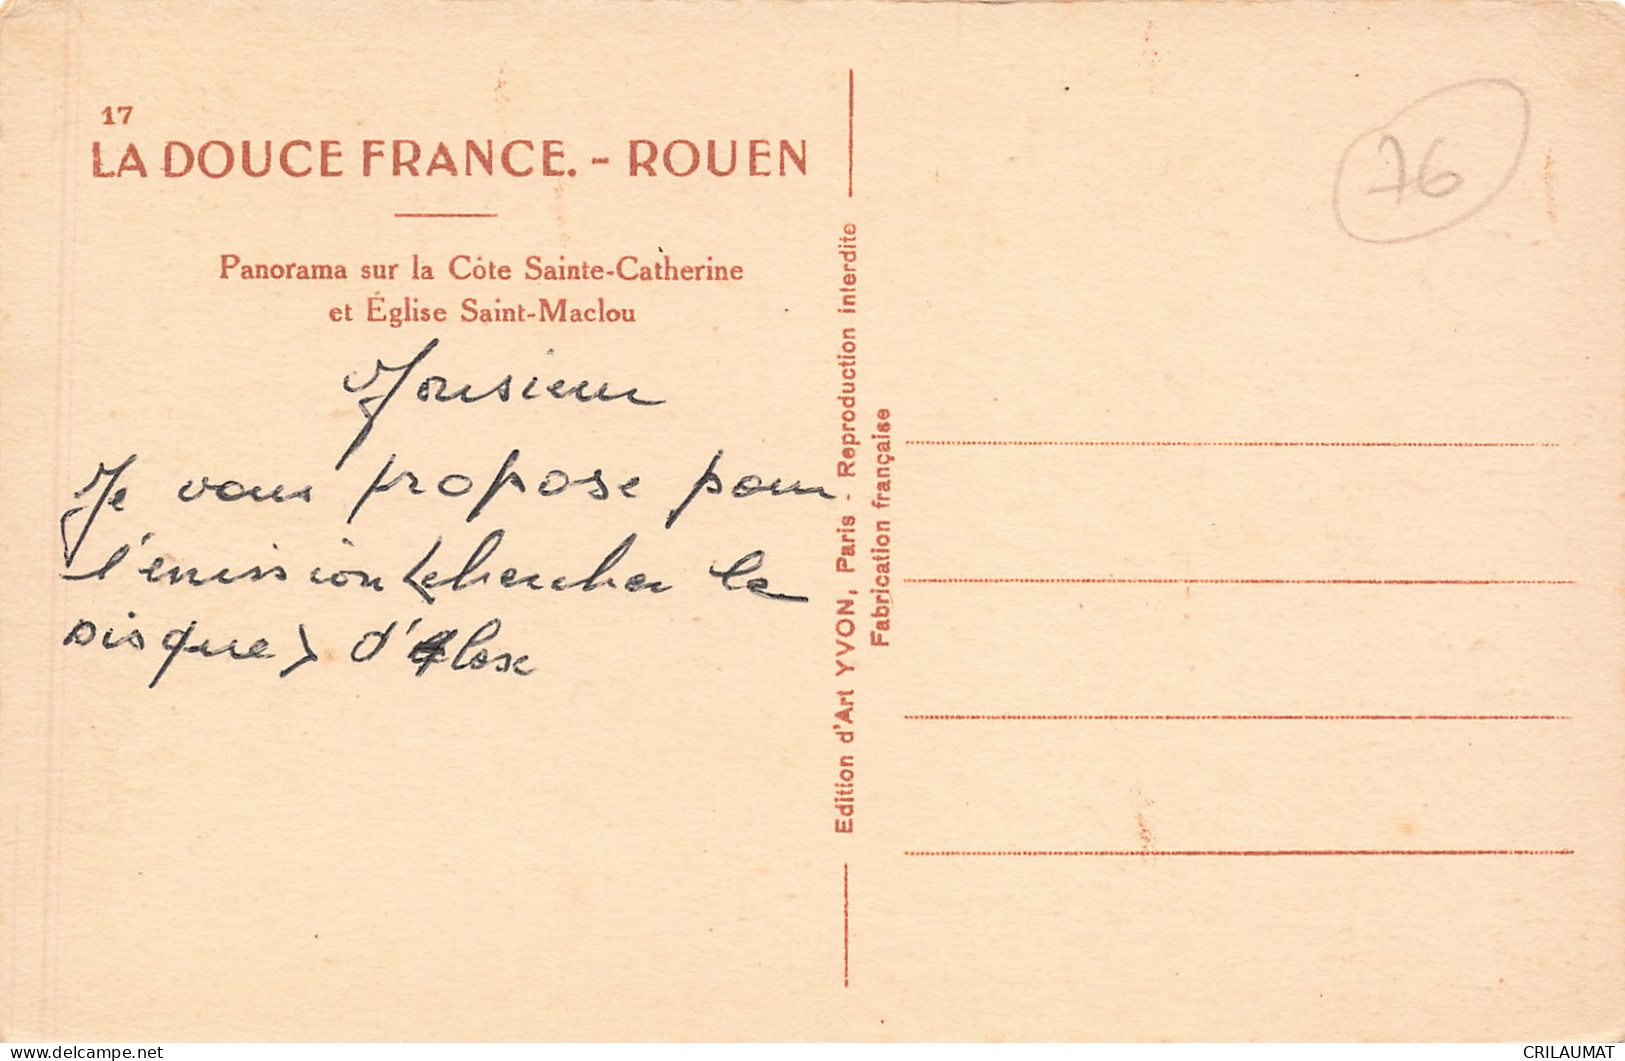 17
LA DOUCE FRANCE. - ROUEN
Panorama sur la Côte Sainte-Catherine
et Église Saint-Maclou
Monsieur
Je vous propose pour
l'émission <chercher le
disque> d'
Edition d'Art YVON, Paris - Reproduction interdite
Fabrication française
76
delcampe.net
CRILAUMAT